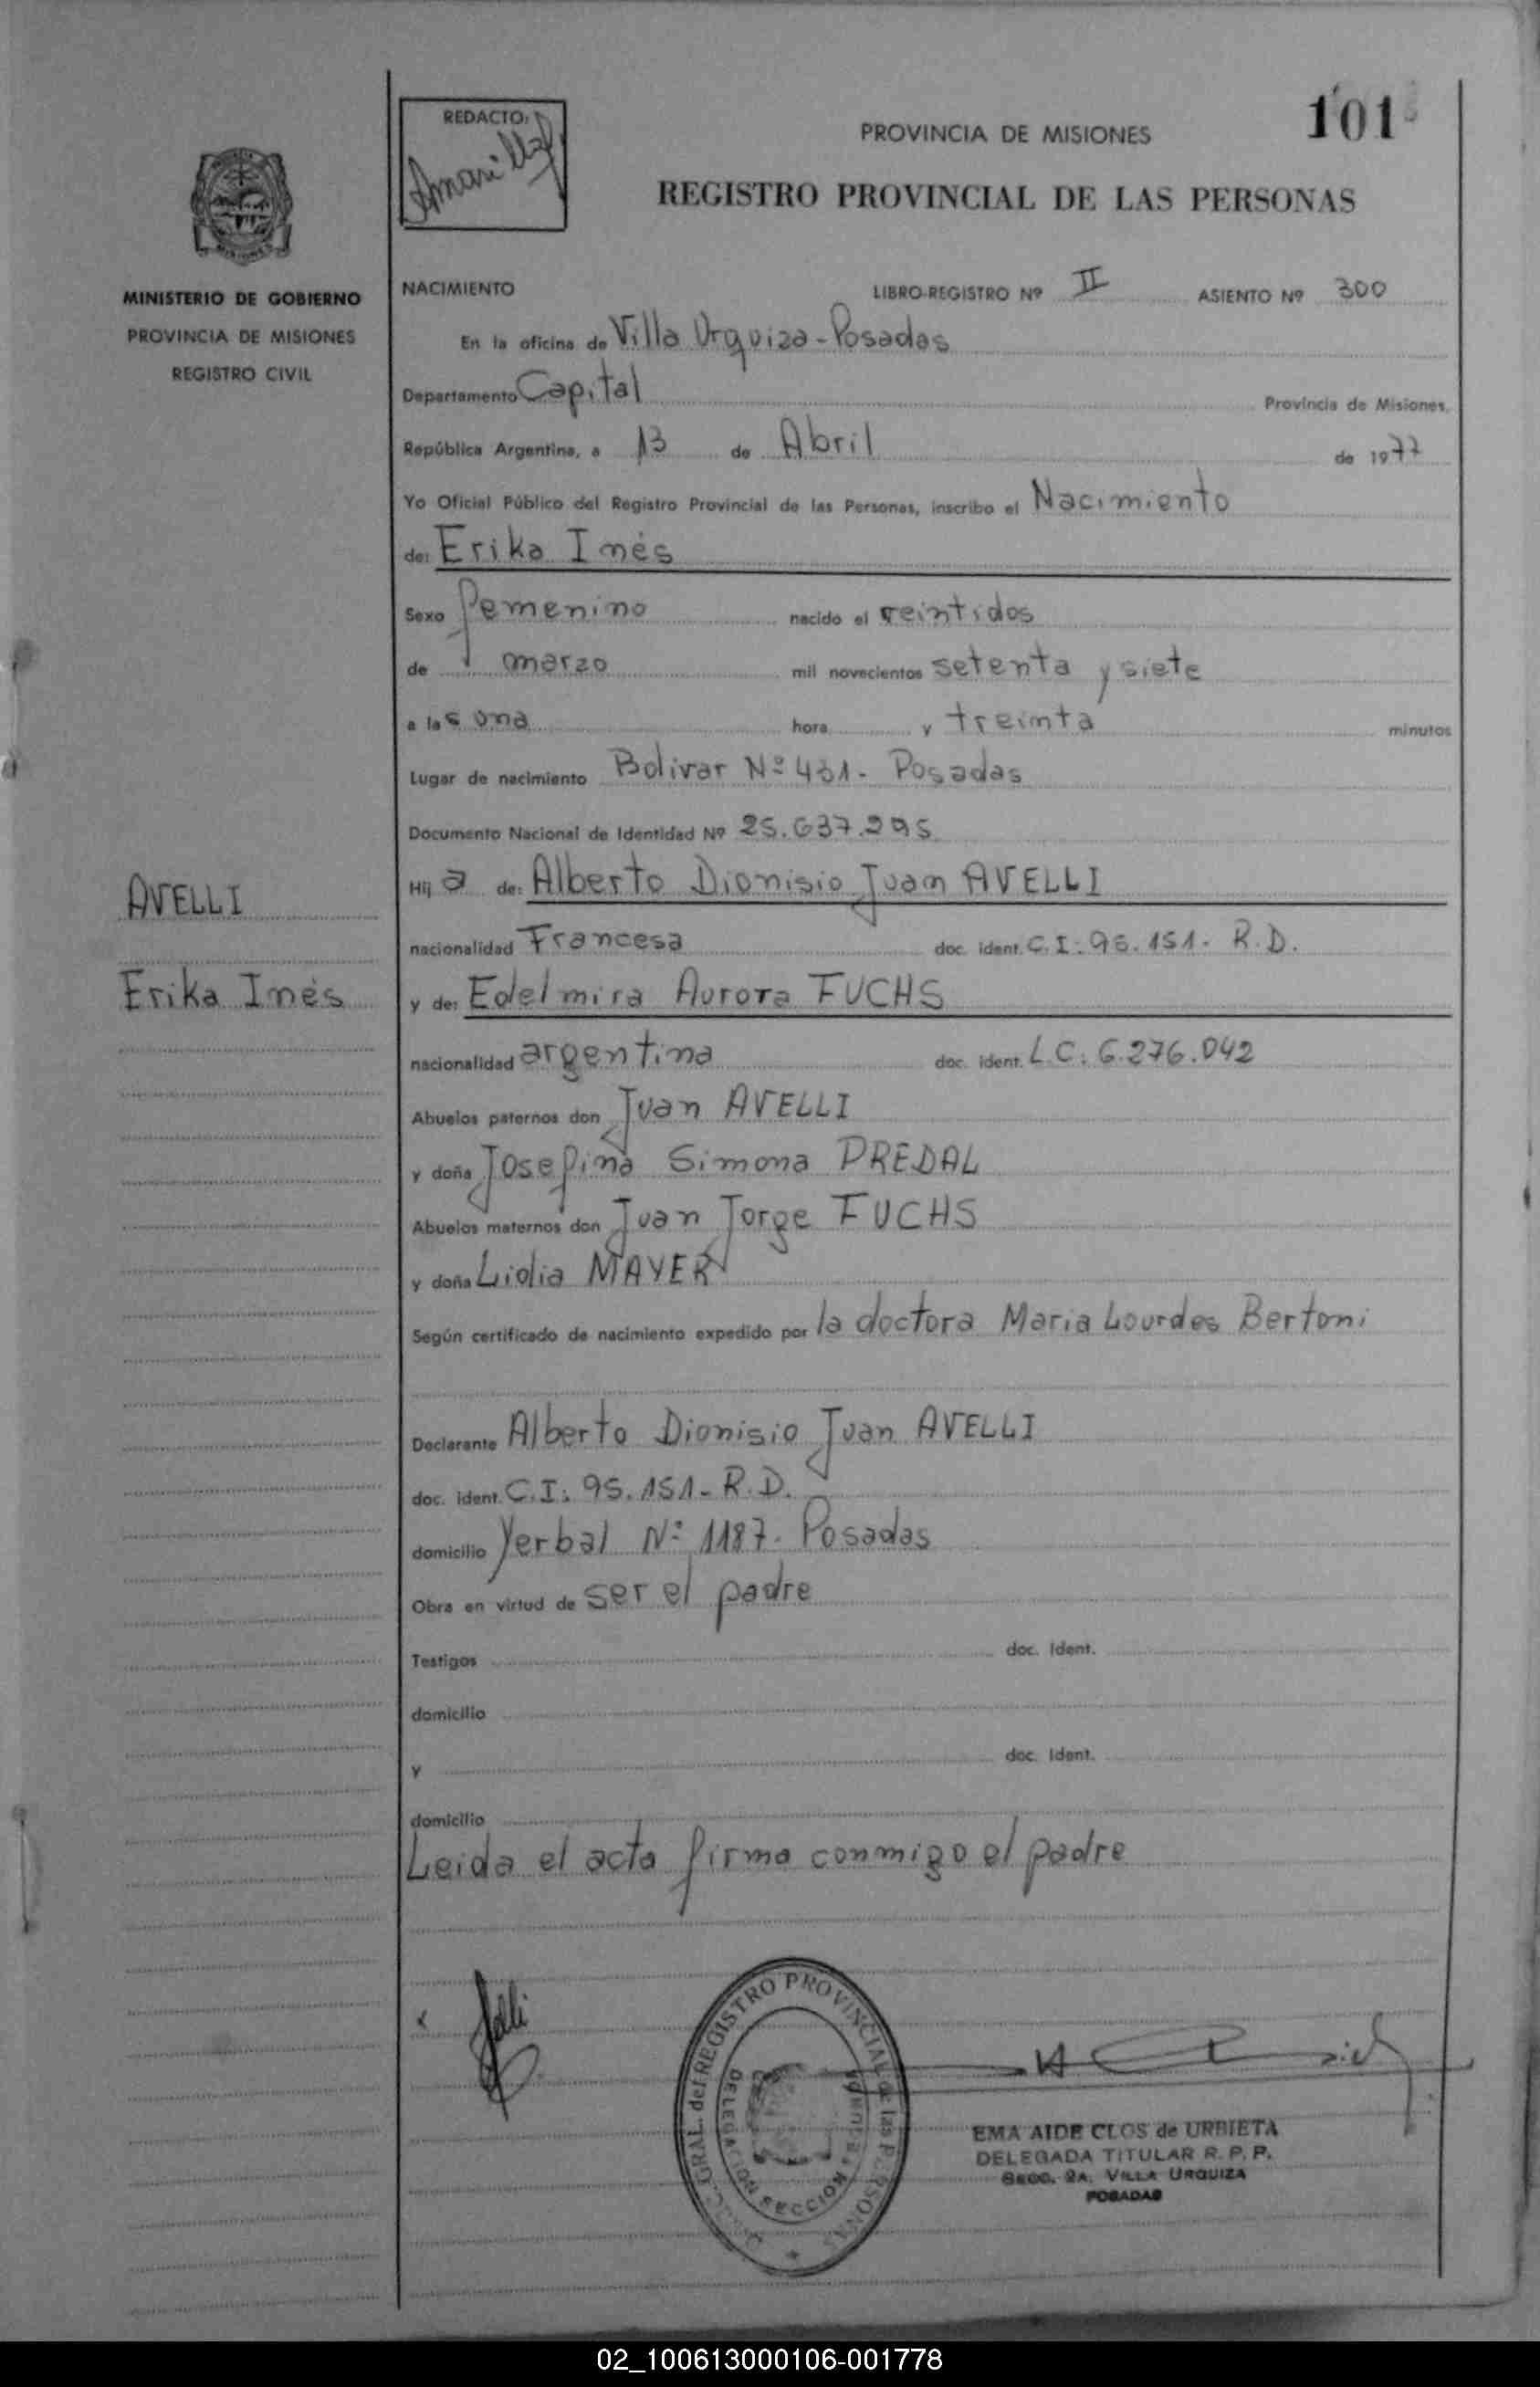 101
REDACTO:
PROVINCIA DE MISIONES
REGISTRO PROVINCIAL DE LAS PERSONAS
MINISTERIO DE GOBIERNO
PROVINCIA DE MISIONES
REGISTRO CIVIL
NACIMIENTO LIBRO-REGISTRO Nº II ASIENTO Nº 300
En la oficina de Villa Urquiza-Posadas
Departamento Capital Provincia de Misiones,
República Argentina, a 13 de Abril de 1977
Yo Oficial Público del Registro Provincial de las Personas, inscribo el Nacimiento
de: Erika Inés
Sexo femenino nacido el veintidos
de marzo mil novecientos setenta y siete
a las una hora y treinta minutos
Lugar de nacimiento Bolivar Nº Posadas
Documento Nacional de Identidad Nº 25.637.295
Hija de: Alberto Dionisio Juan AVELLI
AVELLI
nacionalidad Francesa doc. ident. C.I: 95.151- R.D.
Erika Inés
y de: Edelmira Aurora FUCHS
nacionalidad argentina doc. ident. L.C: 6.276.042
Abuelos paternos don Juan AVELLI
y doña Josefina Simona PREDAL
Abuelos maternos don Juan Jorge FUCHS
y doña Lidia MAYER
Según certificado de nacimiento expedido por la doctora Maria Lourdes Bertoni
Declarante Alberto Dionisio Juan AVELLI
doc. ident. C.I: 95.151- R.D.
domicilio Yerbal Nº 1187- Posadas
Obra en virtud de ser el padre
Testigos doc. Ident.
domicilio
y doc. Ident.
domicilio
Leida el acta firma conmigo el padre
DELEGACION SECCION
REGISTRO PROVINCIAL de las PERSONAS
EMA AIDE CLOS de URBIETA
DELEGADA TITULAR R. P. P.
SECC. 2A. VILLA URQUIZA
POSADAS
02_100613000106-001778